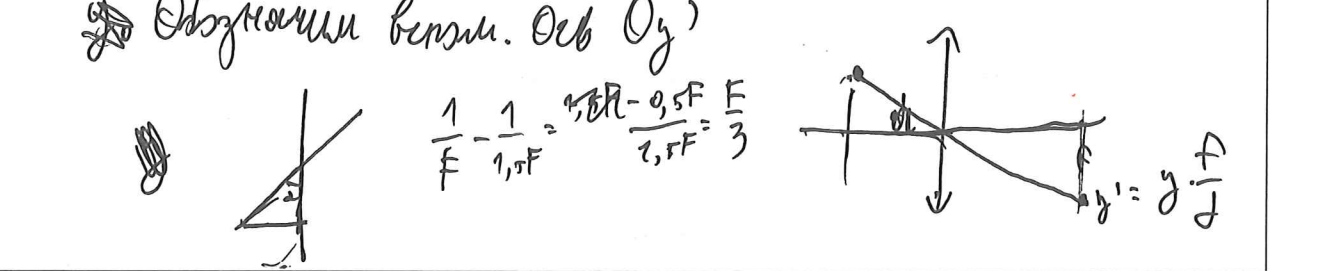 Обозначим вспом. Ось Oy'
1/F - 1/1,5F = - 0,5F/1,5F = F/3
y' = y · f/d